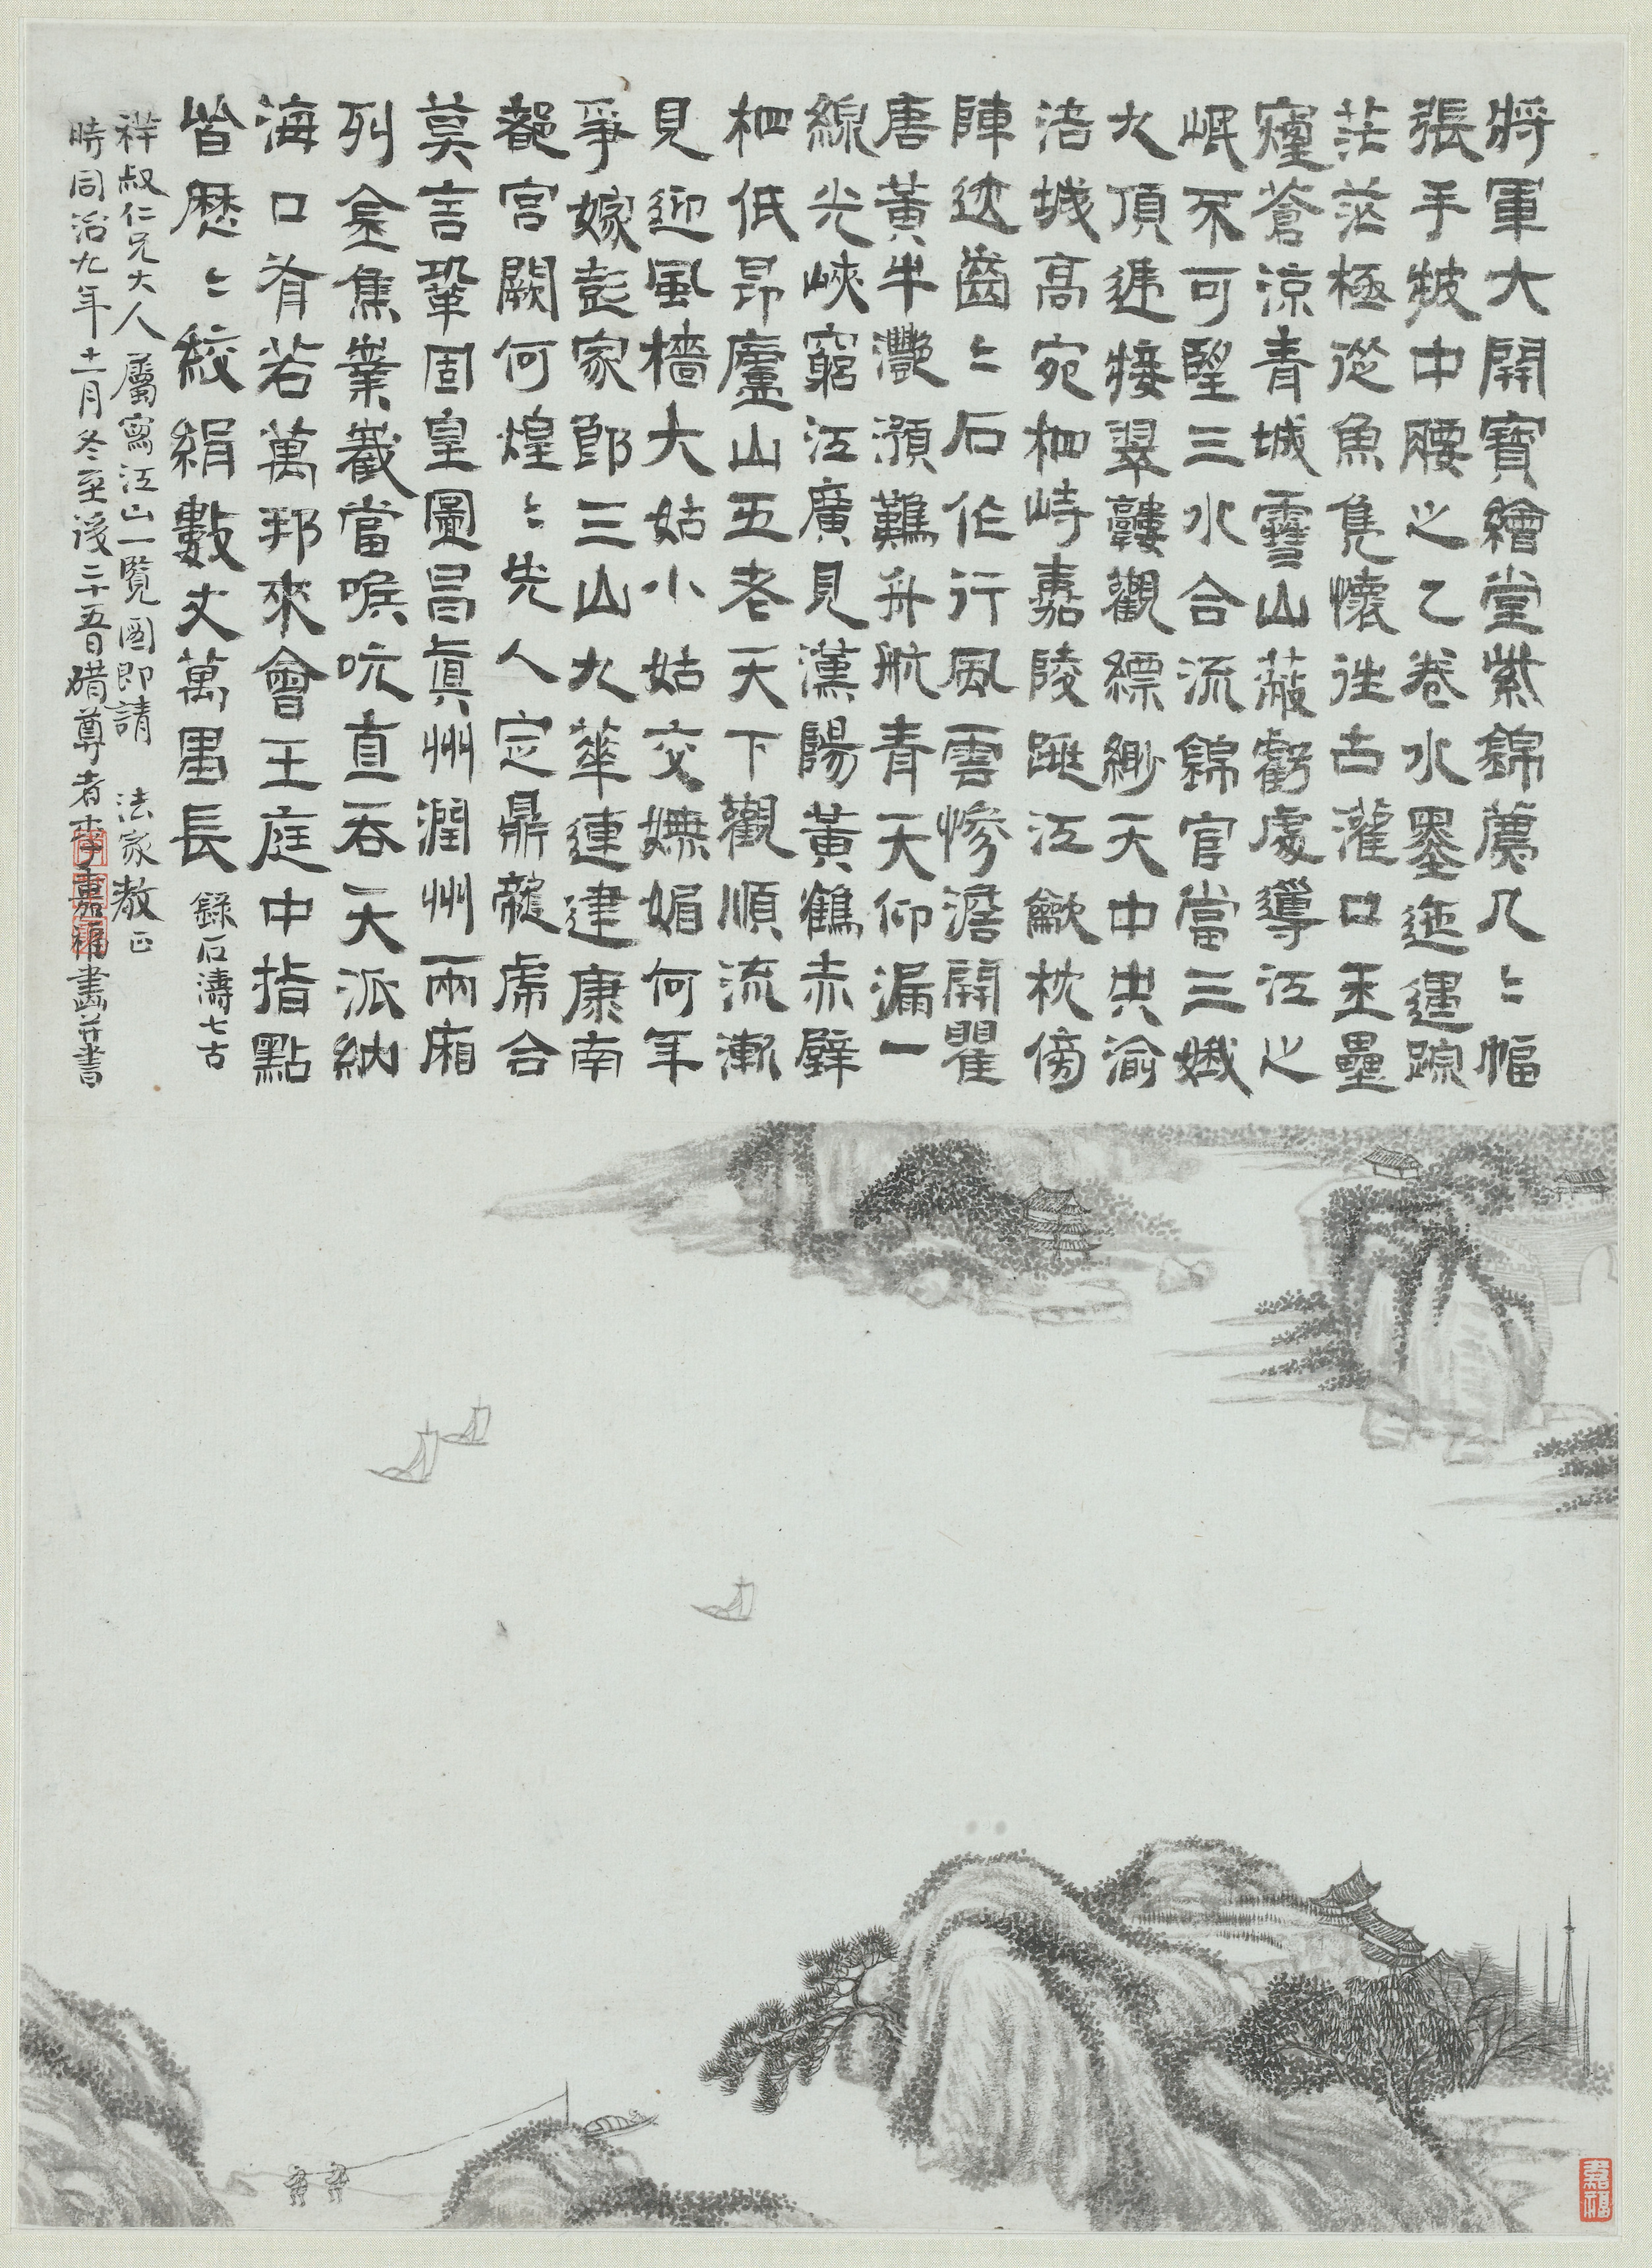 將軍大開寶繪堂紫錦薦几〻幅
張手皴中腰之乙卷水墨迤邐蹤
茫茫極從魚鳧懷往古灌口玉壘
窺蒼涼青城雪山蔽虧處導江之
岷不可望三水合流錦官當三峨
九頂遞接翠鬟觀縹緲天中央渝
涪城高宛栖峙嘉陵跳江歙枕傍
陣迹齒〻石作行風雲慘澹開瞿
唐黃牛灩澦難舟航青天仰漏一
線光峽窮江廣見漢陽黃鶴赤壁
栖低昂廬山五老天下觀順流漸
見迎風檣大姑小姑交嫵媚何年
爭嫁彭家郎三山九華連建康南
都宮闕何煌〻先人定鼎龍虎合
莫言鞏固皇圖昌真州潤州兩廂
列金焦業嶻當喉吭直吞天派納
海口有若萬邦來會王庭中指點
皆歷〻絞絹數丈萬里長 錄石濤七古
祥叔仁兄大人屬寫江山一覽圖即請 法家教正
時同治九年十一月冬至後二十五日 醋尊者李嘉福畫并書
嘉福